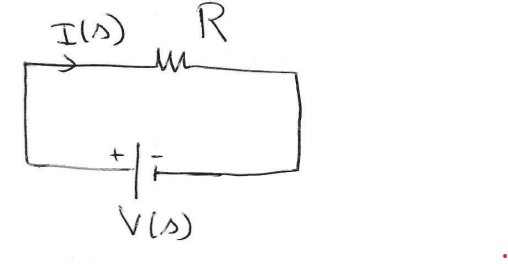 I(s) R
+ -
V(s)